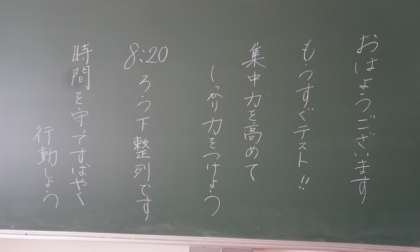 おはようございます
もうすぐテスト!!
集中力を高めて
しっかり力をつけよう
8:20 ろう下整列です
時間を守ってすばやく
行動しよう